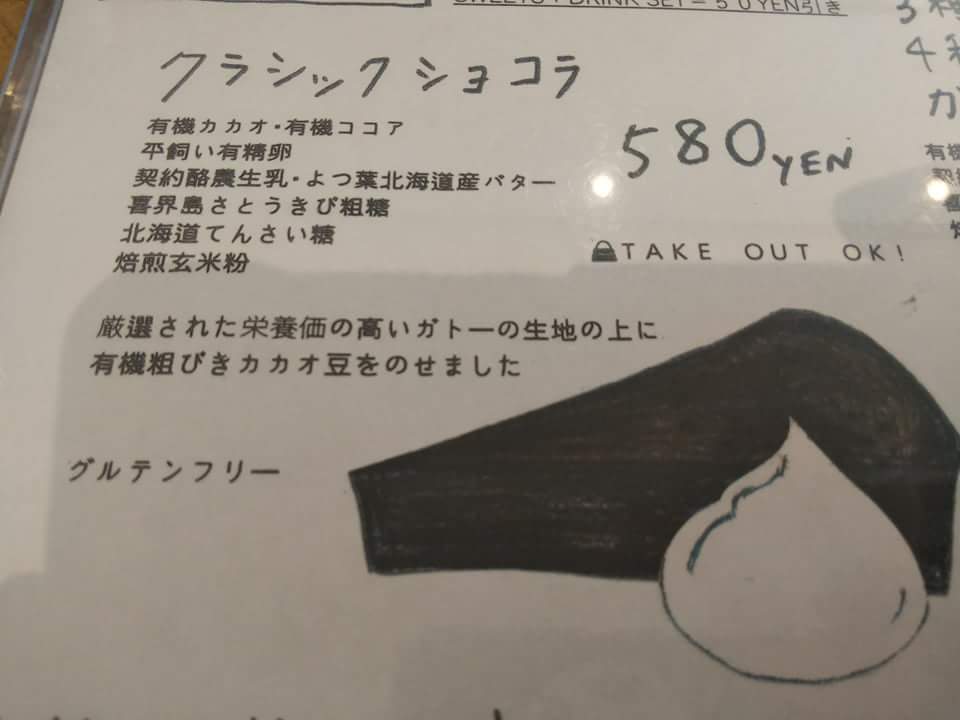 SWEETS+DRINK SET－５０YEN引き
クラシックショコラ
580YEN
有機カカオ・有機ココア
平飼い有精卵
契約酪農生乳・よつ葉北海道産バター
喜界島さとうきび粗糖
北海道てんさい糖
焙煎玄米粉
TAKE OUT OK!
厳選された栄養価の高いガトーの生地の上に
有機粗びきカカオ豆をのせました
グルテンフリー
3種
4種
ガ
有機
契約